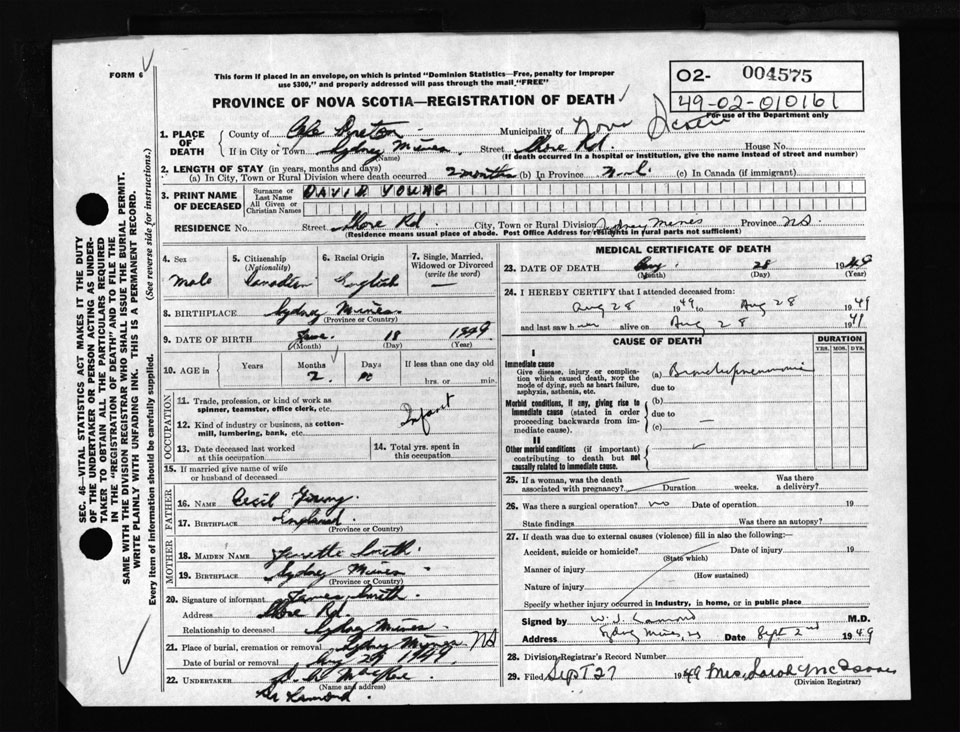 FORM 6
This form if placed in an envelope, on which is printed "Dominion Statistics—Free, penalty for improper
use $300," and properly addressed will pass through the mail "FREE"
PROVINCE OF NOVA SCOTIA—REGISTRATION OF DEATH
O2- 004575
49-02-010161
For use of the Department only
SEC. 46—VITAL STATISTICS ACT MAKES IT THE DUTY
OF THE UNDERTAKER OR PERSON ACTING AS UNDER-
TAKER TO OBTAIN ALL THE PARTICULARS REQUIRED
IN THE "REGISTRATION OF DEATH" AND TO FILE THE
SAME WITH THE DIVISION REGISTRAR WHO SHALL ISSUE THE BURIAL PERMIT.
WRITE PLAINLY WITH UNFADING INK. THIS IS A PERMANENT RECORD.
Every item of information should be carefully supplied. (See reverse side for instructions.)
1. PLACE OF DEATH
County of Cape Breton Municipality of Nova Scotia
If in City or Town Sydney Mines Street Shore Rd. House No.
(Name) (If death occurred in a hospital or institution, give the name instead of street and number)
2. LENGTH OF STAY (in years, months and days)
(a) In City, Town or Rural Division where death occurred 2 months (b) In Province N.S. (c) In Canada (if immigrant)
3. PRINT NAME OF DECEASED
Surname or Last Name DAVID YOUNG
All Given or Christian Names
RESIDENCE No. Street Shore Rd City, Town or Rural Division Sydney Mines Province NS
(Residence means usual place of abode. Post Office Address for residents in rural parts not sufficient)
4. Sex Male
5. Citizenship (Nationality) Canadian
6. Racial Origin English
7. Single, Married, Widowed or Divorced (write the word) —
8. BIRTHPLACE Sydney Mines
(Province or Country)
9. DATE OF BIRTH June 18 1949
(Month) (Day) (Year)
10. AGE in Years Months 2 Days 10 If less than one day old hrs. or min.
OCCUPATION
11. Trade, profession or kind of work as spinner, teamster, office clerk, etc. Infant
12. Kind of industry or business, as cotton-mill, lumbering, bank, etc.
13. Date deceased last worked at this occupation
14. Total yrs. spent in this occupation
15. If married give name of wife or husband of deceased
FATHER
16. Name Cecil Young
17. Birthplace England
(Province or Country)
MOTHER
18. MAIDEN NAME Smith
19. BIRTHPLACE Sydney Mines
(Province or Country)
20. Signature of informant James Smith
Address Shore Rd.
Relationship to deceased Sydney Mines
21. Place of burial, cremation or removal Sydney Mines NS
Date of burial or removal Aug 29 1949
22. UNDERTAKER
(Name and address)
MEDICAL CERTIFICATE OF DEATH
23. DATE OF DEATH Aug. 28 1949
(Month) (Day) (Year)
24. I HEREBY CERTIFY that I attended deceased from:
Aug 28 1949 to Aug 28 1949
and last saw him alive on Aug 28 1949
CAUSE OF DEATH
DURATION
YRS. MOS. DYS.
I
Immediate cause
Give disease, injury or complication which caused death, NOT the mode of dying, such as heart failure, asphyxia, asthenia, etc.
(a) Bronchopneumonia
due to
Morbid conditions, if any, giving rise to immediate cause (stated in order proceeding backwards from immediate cause).
(b)
due to
(c)
II
Other morbid conditions (if important) contributing to death but not causally related to immediate cause.
25. If a woman, was the death associated with pregnancy? Duration weeks. Was there a delivery?
26. Was there a surgical operation? no Date of operation 19
State findings Was there an autopsy?
27. If death was due to external causes (violence) fill in also the following:—
Accident, suicide or homicide? Date of injury 19
(State which)
Manner of injury
(How sustained)
Nature of injury
Specify whether injury occurred in industry, in home, or in public place
Signed by M.D.
Address Sydney Mines, NS Date Sept 2nd 1949
28. Division Registrar's Record Number
29. Filed Sept 27 1949 Mrs. Sarah McIsaac
(Division Registrar)